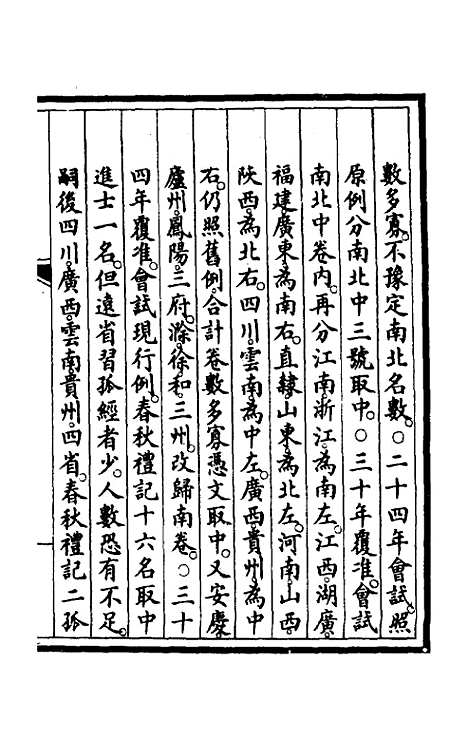 數多寡。不豫定南北名數。○二十四年會試。照
原例分南北中三號取中。○三十年覆准。會試
南北中卷內。再分江南浙江。為南左。江西。湖廣。
福建廣東。為南右。直隸山東。為北左。河南。山西。
陝西。為北右。四川。雲南。為中左。廣西貴州。為中
右。仍照舊例。合計卷數多寡。憑文取中。又安慶
廬州。鳳陽。三府。滁。徐和。三州。改歸南卷。○三十
四年覆准。會試現行例。春秋禮記十六名取中
進士一名。但遠省習孤經者少。人數恐有不足。
嗣後四川。廣西。雲南貴州。四省。春秋禮記二孤